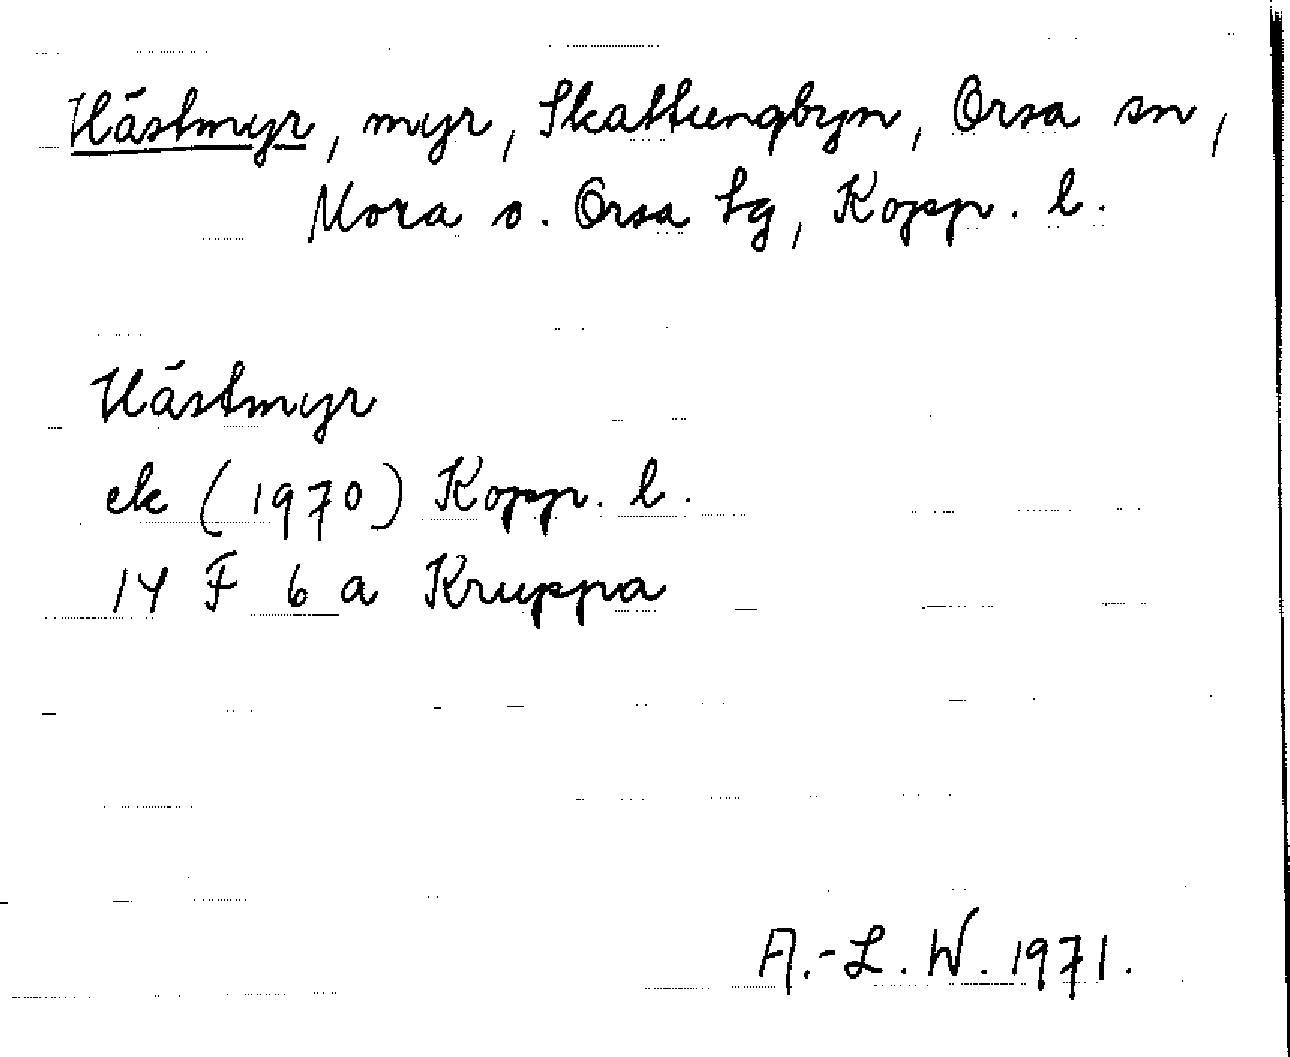 Hästmyr, myr, Skattungbyn, Orsa sn,
Mora o. Orsa tg, Kopp. l.
Hästmyr
ek (1970) Kopp. l.
14 F 6 a Kruppa
A.-L. W. 1971.